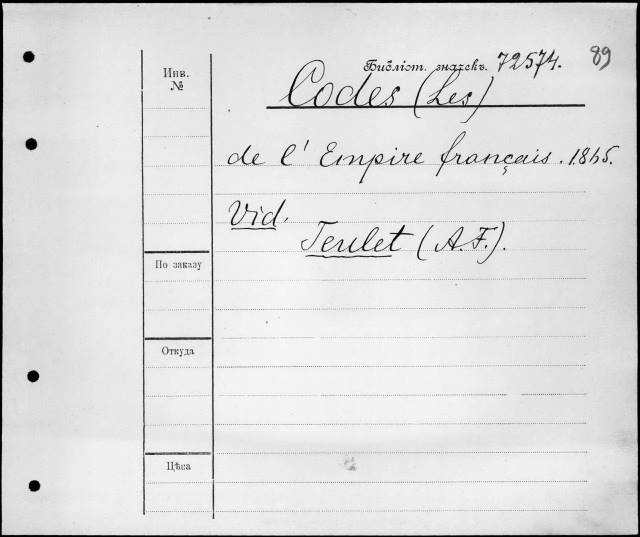 Инв.
№
Библіот. значекъ. 72574. 89
Codes (Les)
de l'Empire français. 1855.
Vid.
Teulet (A.F.).
По заказу
Откуда
Цѣна